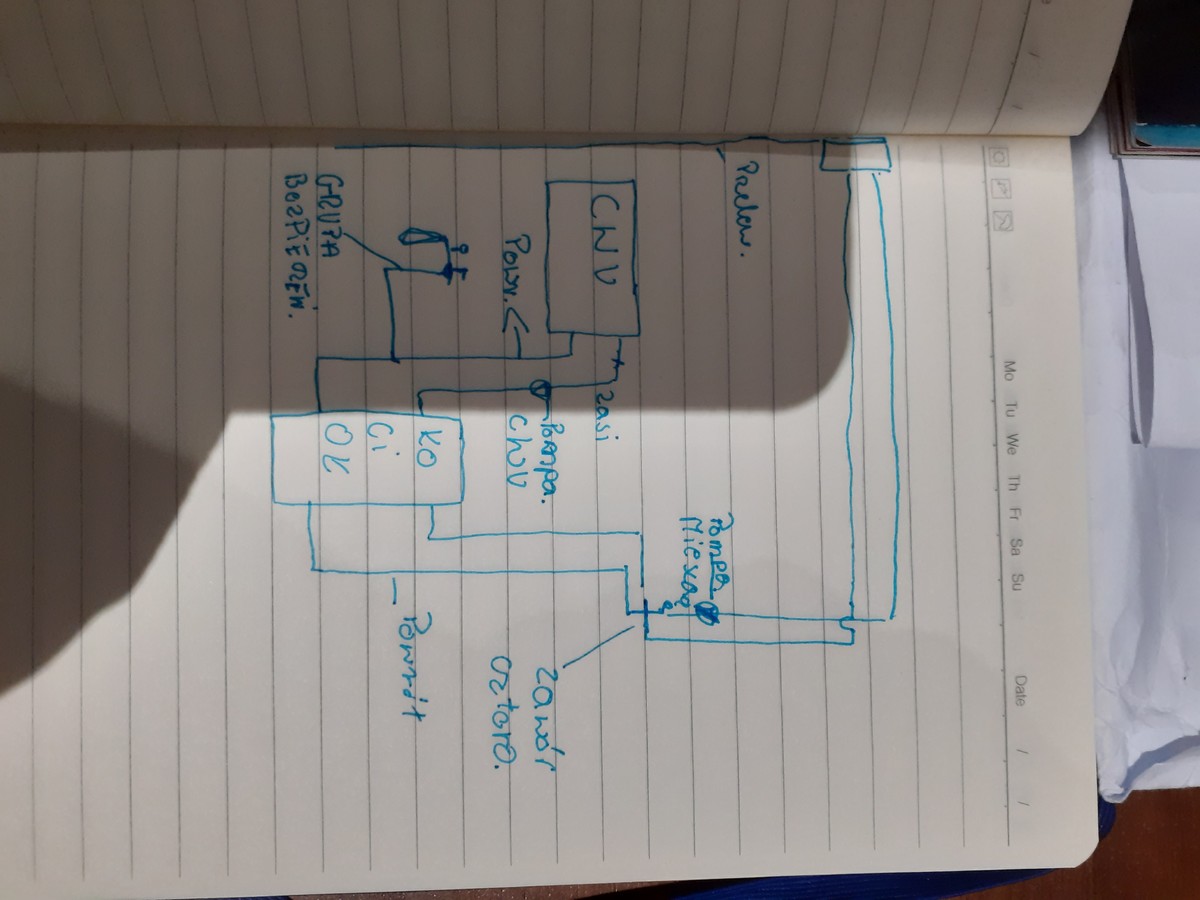 Mo Tu We Th Fr Sa Su
Date / /
Przelew.
Pompa
CWU
Zasi
Powr.
Pompa.
CWU
Zawór
cztero.
KO
Ci
OŁ
Powrót
GRUPA
BezPiECZEŃ.